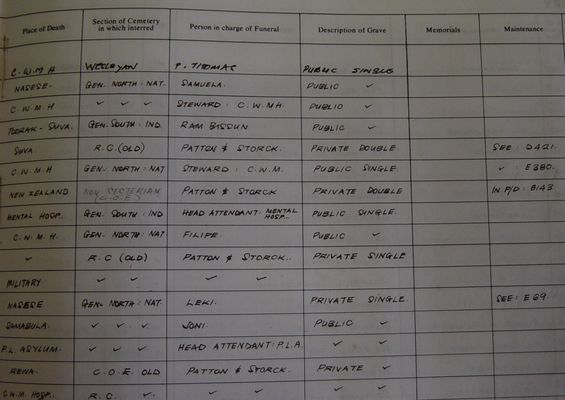 Place of Death Section of Cemetery in which interred Person in charge of Funeral Description of Grave Memorials Maintenance
C.W.M.H WESLEYAN P. THOMAS PUBLIC SINGLE
NASESE. GEN. NORTH: NAT. SAMUELA. PUBLIC ✓
C.W.M.H ✓ ✓ ✓ STEWARD: C.W.MH. PUBLIC ✓
TOORAK - SUVA. GEN. SOUTH: IND. RAM BISSUN PUBLIC ✓
SUVA. R.C.(OLD) PATTON & STORCK. PRIVATE DOUBLE. SEE: D421.
C.W.M.H GEN. NORTH: NAT STEWARD: C.W.M. PUBLIC SINGLE. ✓ : E380.
NEW ZEALAND (C.O.E) PATTON & STORCK PRIVATE DOUBLE IN P/D: B143
MENTAL HOSP.. GEN. SOUTH: IND HEAD ATTENDANT: MENTAL HOSP.. PUBLIC SINGLE.
C.W.M.H. GEN. NORTH: NAT FILIPE. PUBLIC ✓
✓ R.C (OLD) PATTON & STORCK.. PRIVATE SINGLE
MILITARY ✓ ✓ ✓ ✓
NASESE GEN. NORTH: NAT LEKI. PRIVATE SINGLE. SEE: E69.
SAMABULA. ✓ ✓ ✓ JONI. PUBLIC ✓
P.L. ASYLUM. ✓ ✓ ✓ HEAD ATTENDANT: P.L.A. ✓ ✓
REWA. C.O.E. OLD PATTON & STORCK. PRIVATE ✓
C.W.M. HOSP.. R.C. ✓. ✓ ✓ ✓ ✓